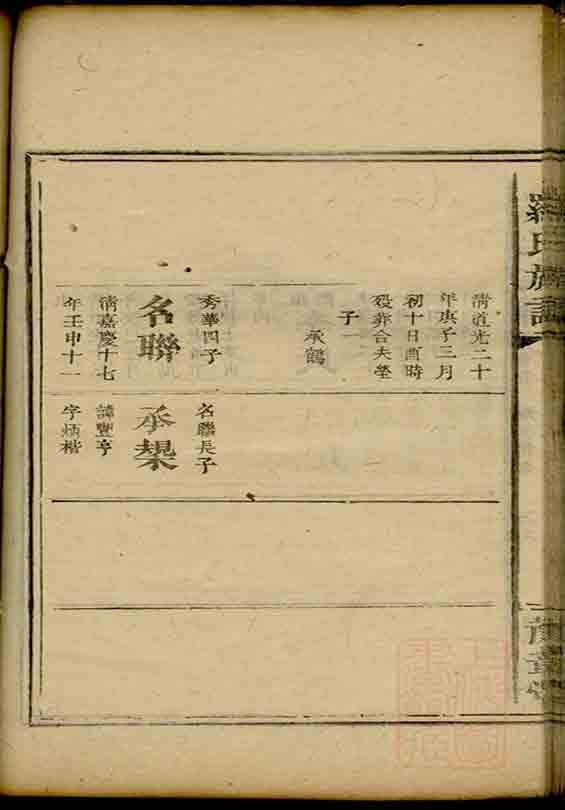 羅氏族譜
清道光二十
年庚子三月
初十日酉時
歿葬合夫塋
子一
承鶴
秀華四子
名聯
清嘉慶十七
年壬申十一
名聯長子
承槼
諱豐亨
字炳楷